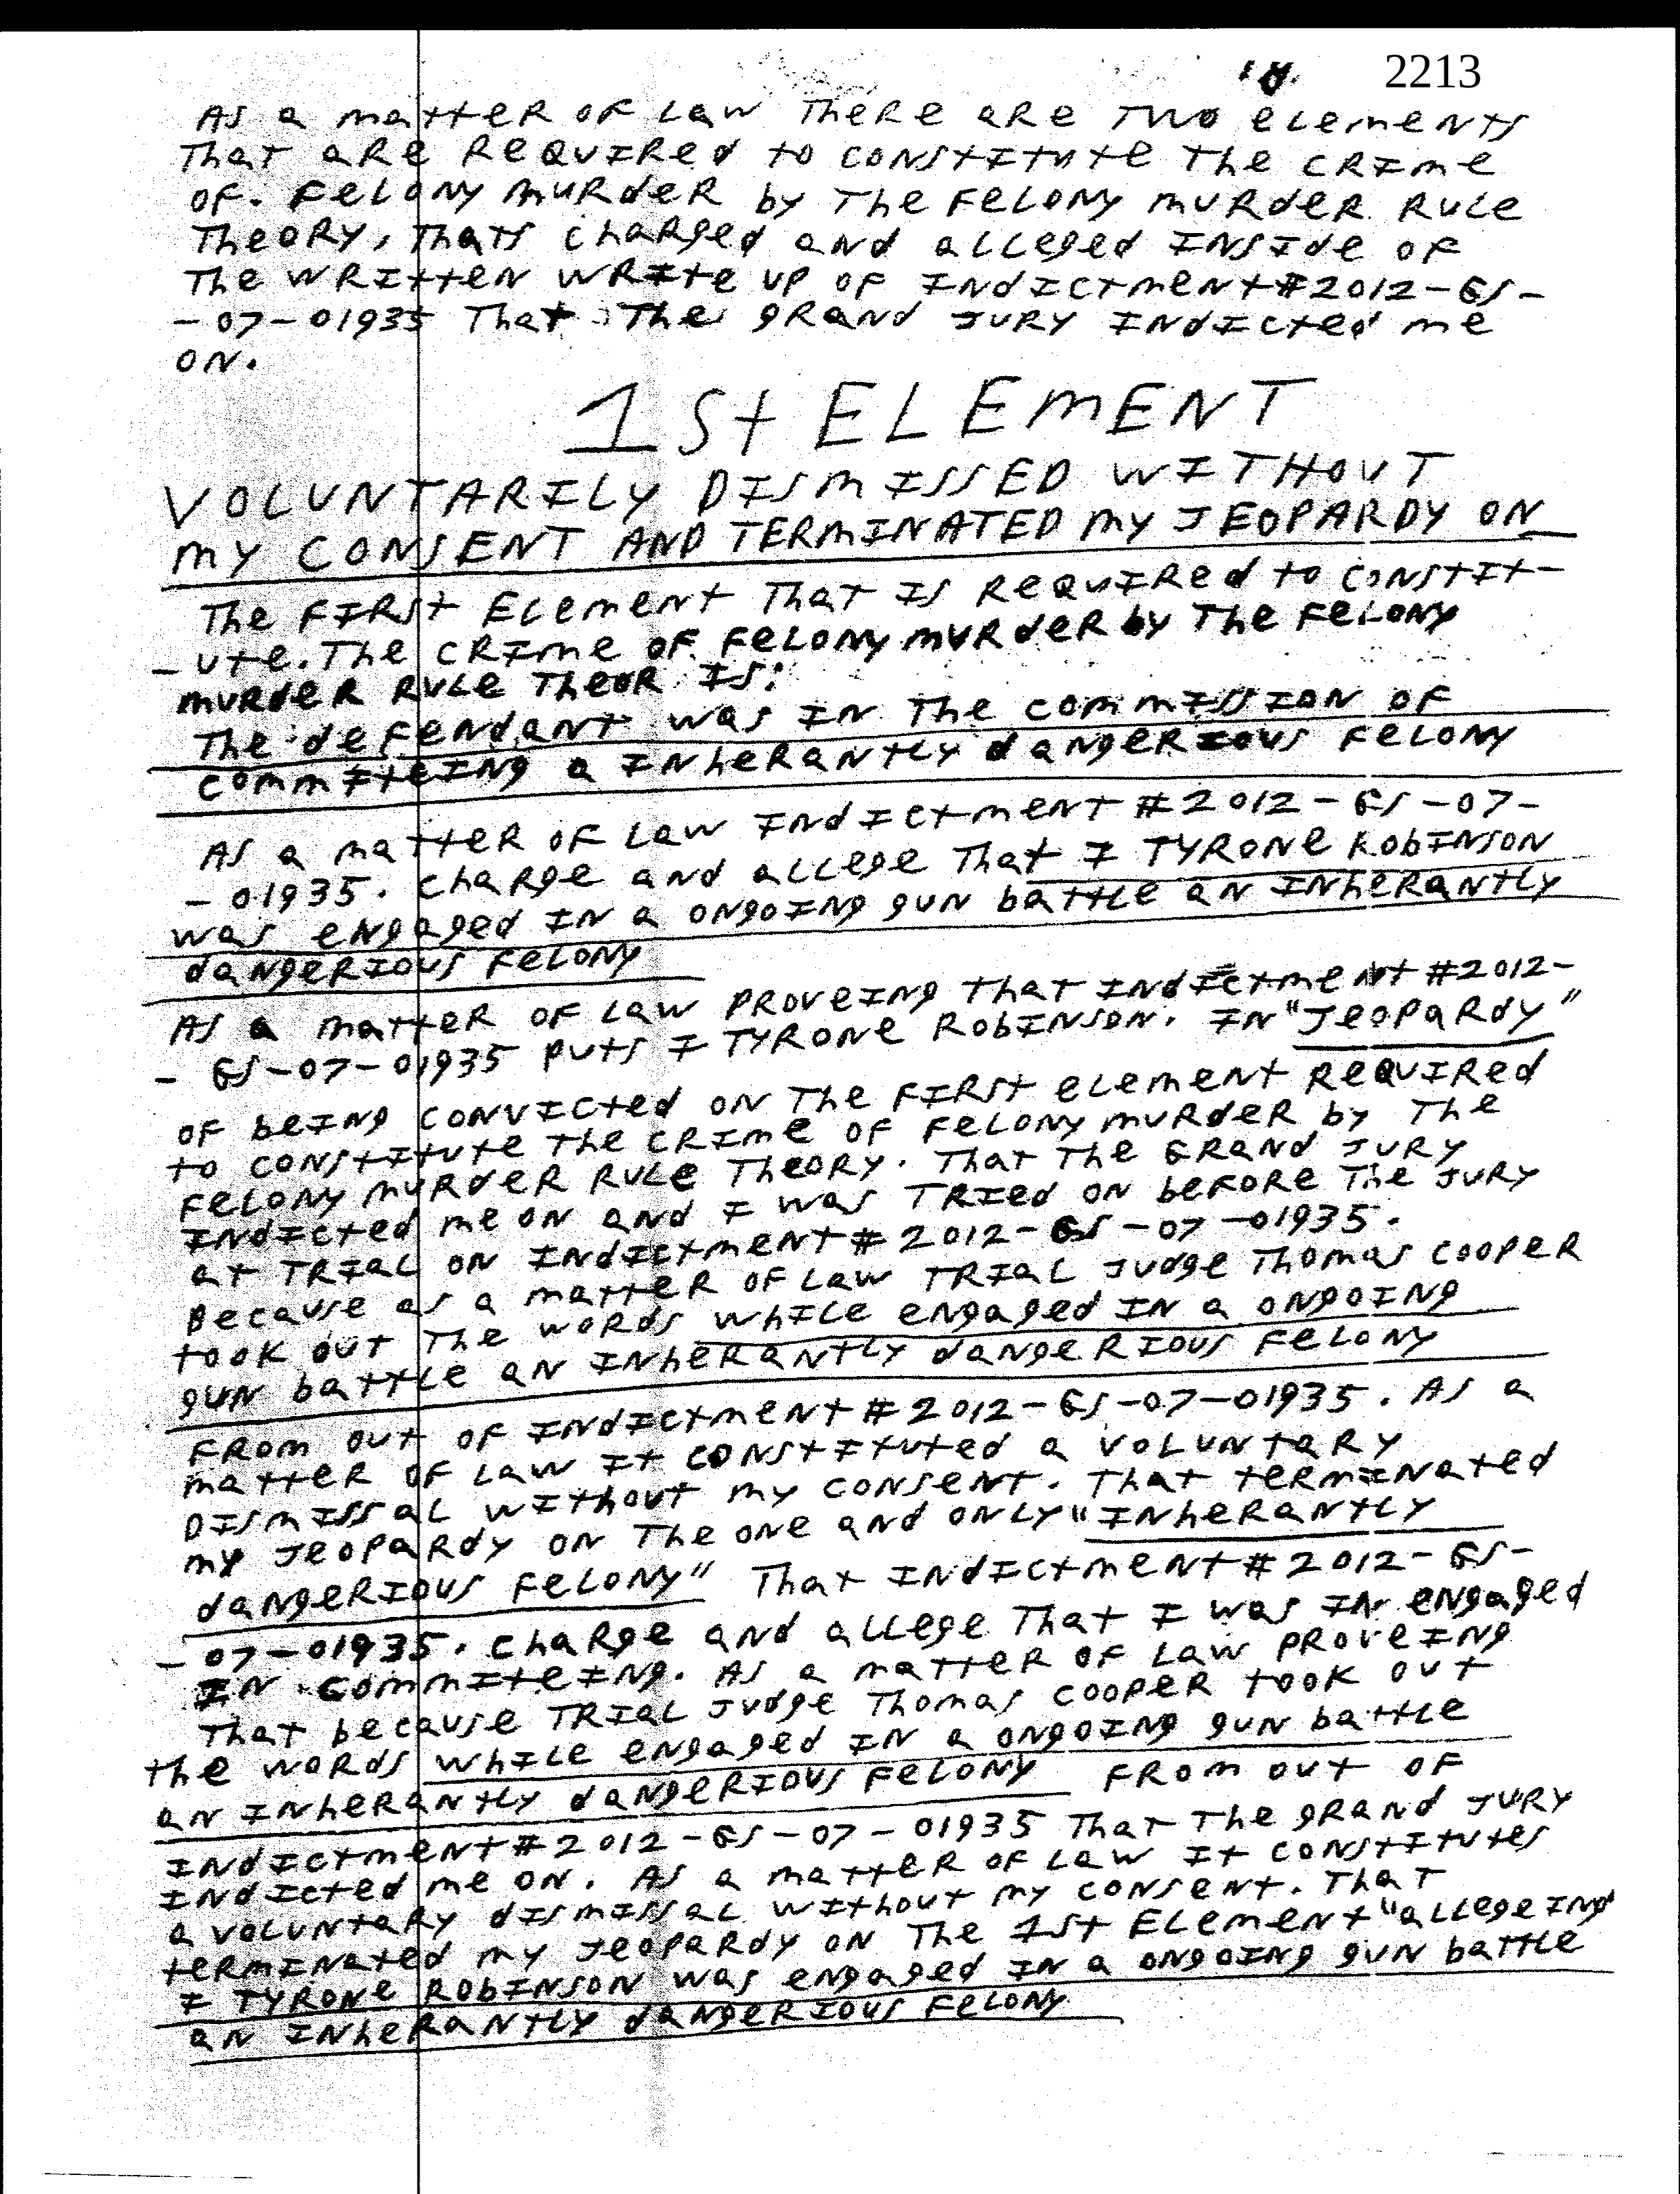 2213
As a matter of Law There are Two elements
That are Required to constitute The crime
of. Felony murder by The Felony murder Rule
Theory, Thats charged and alleged Inside of
The written write up of Indictment#2012-GS-
-07-01935 That The grand Jury Indicted me
on.
1St ELEMENT
VOLUNTARILY DISMISSED WITHOUT
MY CONSENT AND TERMINATED MY JEOPARDY ON
The First Element That Is Required to constit-
-ute. The crime of Felony murder by The Felony
murder Rule Theor Is:
The defendant was In The commission of
commiteing a Inherantly dangerious Felony
As a matter of Law Indictment #2012-GS-07-
-01935. charge and allege That I Tyrone Robinson
was engaged In a ongoing gun battle an Inherantly
dangerious Felony
As a matter of Law proveing that Indictment #2012-
- GS-07-01935 puts I Tyrone Robinson. In "Jeopardy"
of being convicted on The First element Required
to constitute The crime of Felony murder by The
Felony murder Rule Theory. That The Grand Jury
Indicted me on and I was Tried on before The Jury
at Trial on Indictment #2012-GS-07-01935.
Because as a matter of Law Trial Judge Thomas Cooper
took out The words while engaged In a ongoing
gun battle an Inherantly dangerious Felony
From out of Indictment #2012-GS-07-01935. As a
matter of Law It constituted a voluntary
Dismissal without my consent. That terminated
my Jeopardy on The one and only "Inherantly
dangerious Felony" That Indictment #2012-GS-
-07-01935. charge and allege That I was In engaged
In commiteing. As a matter of Law proveing
That because Trial Judge Thomas Cooper took out
the words while engaged In a ongoing gun battle
an Inherantly dangerious Felony From out of
Indictment #2012-GS-07-01935 That The grand Jury
Indicted me on. As a matter of Law It constitutes
a voluntary dismissal without my consent. That
terminated my Jeopardy on The 1st Element "allegeing
I Tyrone Robinson was engaged In a ongoing gun battle
an Inherantly dangerious Felony